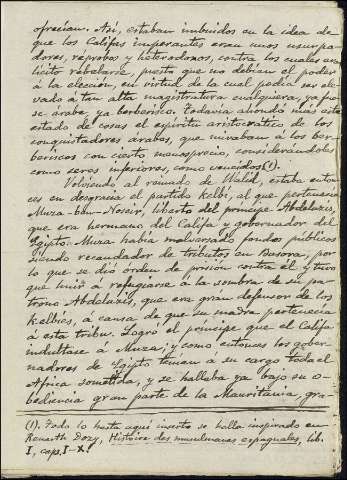 ofrecian. Así, estaban imbuidos en la idea de
que los Califas imperantes eran unos usurpa-
dores, réprobos y heterodoxos, contra los cuales era
lícito rebelarse, puesto que no debían el poder
á la elección, en virtud de la cual podía ser ele-
vado á tan alta magistratura cualquiera, ya fue-
se árabe, ya berberisco. Todavía ahondó más este
estado de cosas el espíritu aristocrático de los
conquistadores árabes, que miraban á los ber-
beriscos con cierto menosprecio, considerándoles
como seres inferiores, como vencidos (1).
Volviendo al reinado de Walid, estaba enton-
ces en desgracia el partido kelbí, al que pertenecía
Muza-ebn-Noseir, liberto del príncipe Abdelaziz,
que era hermano del Califa y gobernador del
Egipto. Muza había malversado fondos públicos
siendo recaudador de tributos en Basora, por
lo que se dió orden de prisión contra él, y tuvo
que huir á refugiarse á la sombra de su pa-
trono Abdelaziz, que era gran defensor de los
kelbíes, á causa de que su madre pertenecía
á esta tribu. Logró el príncipe que el Califa
indultase á Muza; y como entonces los gober-
nadores de Egipto tenían á su cargo toda el
Africa sometida, y se hallaba ya bajo su o-
bediencia gran parte de la Mauritania, gra-
(1). Todo lo hasta aquí inserto se halla inspirado en
Dozy, Histoire des musulmanes espagnoles, lib.
I, caps. I-X.